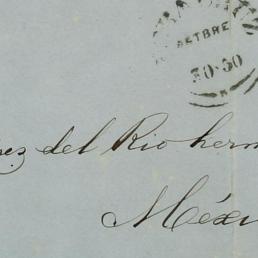 ETBRE
30·50
ez del Rio herm
Méxi